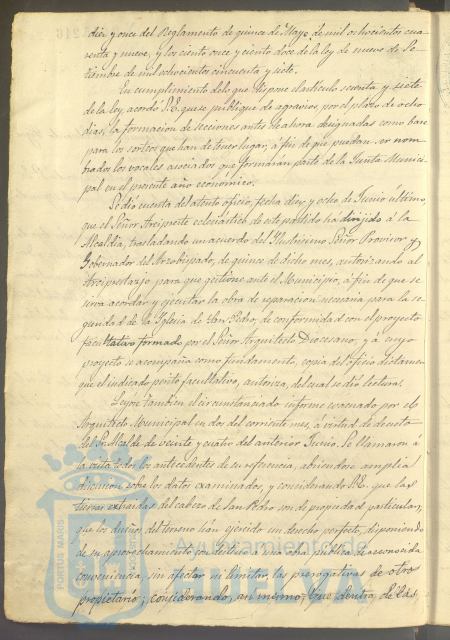 diez y once del Reglamento de quince de Mayo de mil ochocientos cua-
renta y nueve, y los ciento once y ciento doce de la ley de nueve de Se-
tiembre de mil ochocientos cincuenta y siete.
En cumplimiento de lo que dispone el artículo sesenta y siete
de la ley, acordó S.E. que se publique de agravios, por el plazo de ocho
dias, la formacion de secciones antes de ahora designadas como base
para los sorteos que han de tener lugar, á fin de que puedan ser nom-
brados los vocales asociados que formarán parte de la Junta Munici-
pal en el presente año economico.
Se dió cuenta del atento oficio, fecha diez y ocho de Junio último,
que el Señor Arcipreste eclesiástico de este partido ha dirijido á la
Alcaldía, trasladando un acuerdo del Ilustrisimo Señor Provisor y
Gobernador del Arzobispado, de quince de dicho mes, autorizando al
Arciprestazgo para que gestione ante el Municipio, á fin de que se
sirva acordar y ejecutar la obra de reparacion necesaria para la se-
guridad de la Iglesia de San Pedro, de conformidad con el proyecto
facultativo formado por el Señor Arquitecto Diocesano, y á cuyo
proyecto se acompaña como fundamento, copia del oficio dictamen
que el indicado perito facultativo, autoriza, del cual se dio lectura.
Leyose tambien el circunstanciado informe evacuado por el
Arquitecto Municipal en dos del corriente mes, á virtud de decreto
del Sr. Alcalde de veinte y cuatro del anterior Junio. Se llamaron á
la vista todos los antecedentes de su referencia, abriendose amplia
discusion sobre los datos examinados, y considerando S.E. que las
tierras extraidas del cabezo de San Pedro son de propiedad particular,
que los dueños del terreno han ejercido un derecho perfecto, disponiendo
de su aprovechamiento con destino a una obra publica de reconocida
conveniencia, sin afectar ni limitar las prerogativas de otro
propietario; considerando, asi mismo, que dentro de las
PORTUS MARIS
Ayuntamiento de
HUELVA